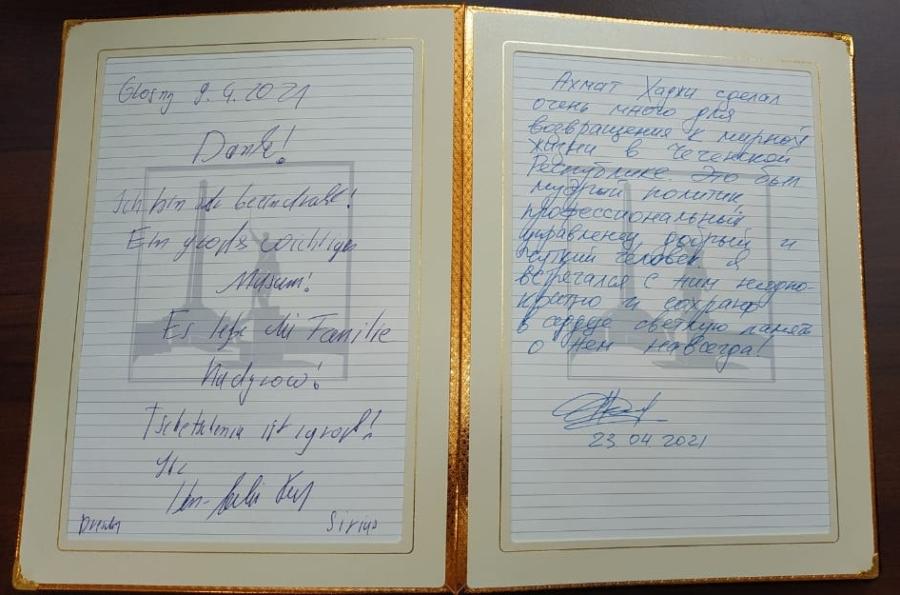 Grosny 9.4.2021
Danke!
Ich bin beeindruckt!
Ein großes wichtiges
Museum!
Es lebe die Familie
Kadyrow!
Tschetschenia ist groß!
Ihr
Dresden
Sirius
Ахмат Хаджи сделал
очень много для
возвращения к мирной
жизни в Чеченской
Республике. Это был
мудрый политик
профессиональный
управленец, добрый и
чуткий человек. Я
встречался с ним неодно-
кратно и сохраню
в сердце светлую память
о нем навсегда!
23.04.2021